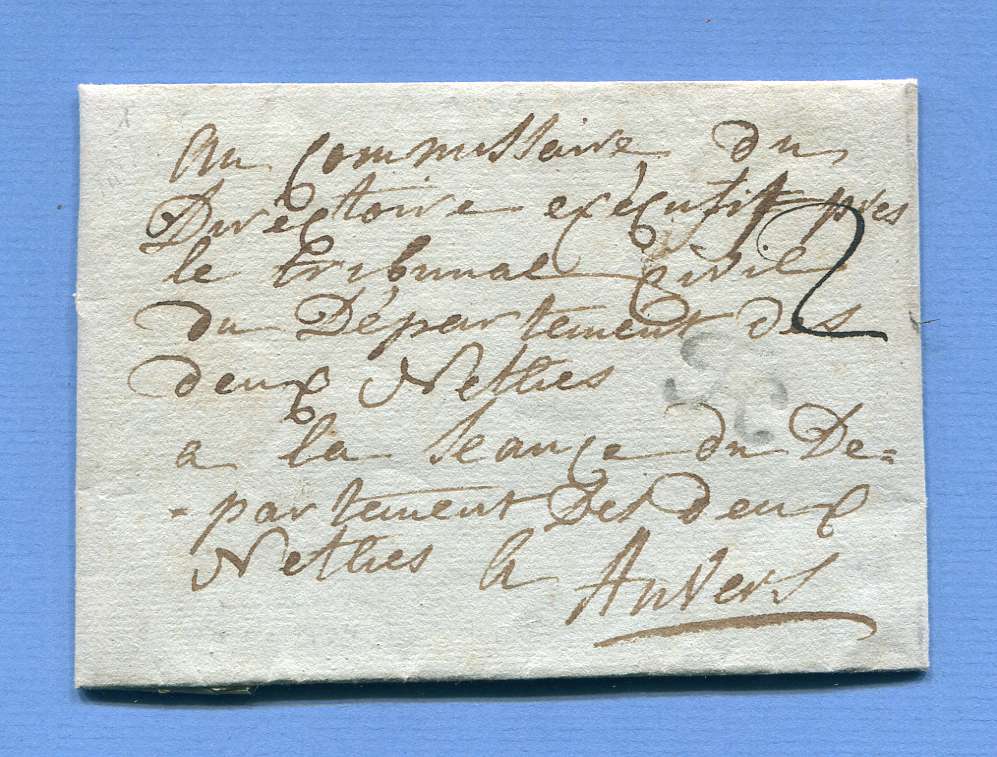 Au Commissaire du
Directoire exécutif pres
le tribunal Civil 2
du Département des
deux Nethes
a la seance du De=
-partement des deux
Nethes à
Anvers